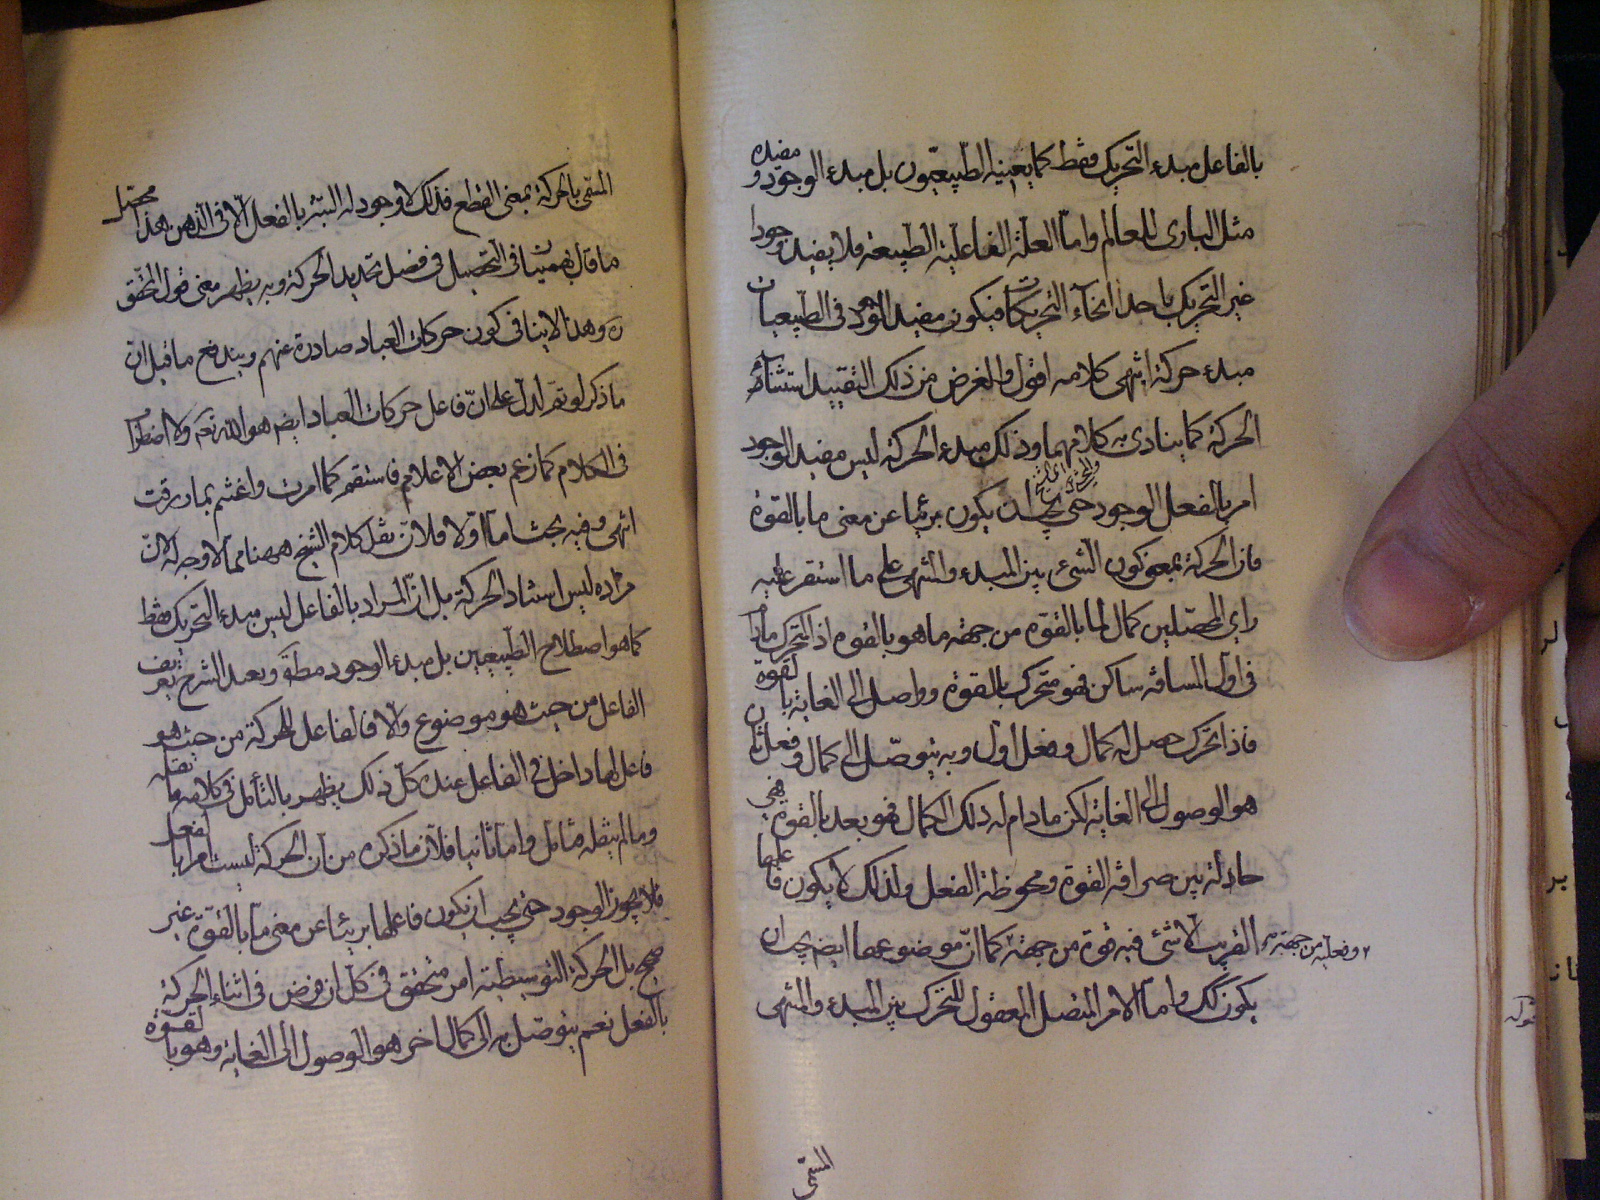 بالفاعل مبدء التحريك فقط كما يعينيه الطبيعيون بل مبدء الوجود ومفيده
مثل الباري للعالم واما العلة الفاعلية الطبيعية فلا يفيد وجودا
غير التحريك باحد انحاء التحريكات فيكون مفيد الوجود في الطبيعيات
مبدء حركة انتهى كلامه اقول والغرض من ذلك التقييد استثناء
الحركة كما ينادى به كلامهما وذلك مبدء الحركة ليس مفيد الوجود
امر بالفعل الوجود حتى يجب ان يكون بريئا عن معنى ما بالقوة
فان الحركة بمعنى كون الشئ بين المبدء والمنتهى على ما استقر عليه
راي المحصلين كمال لما بالقوة من جهة ما هو بالقوة اذ المتحرك ما دام
في اول المسافة ساكن فهو متحرك بالقوة وواصل الى الغاية بالقوة
فاذا تحرك حصل له كمال وفعل اول وبه يتوصل الى كمال وفعل ثان
هو الوصول الى الغاية لكن ما دام له ذلك الكمال فهو بعد بالقوة فهي
حادثة بين صرافة القوة ومحوضة الفعل ولذلك لا يكون فاعلها
القريب الا شئ فيه قوة من جهة كما ان موضوعها ايضم يجب ان
وفعلية من جهة
يكون كك واما الامر المتصل المعقول للمتحرك بين المبدء والمنتهى
المسمى
المسمى بالحركة بمعنى القطع فذلك لا وجود له البتة بالفعل الا في الذهن هذا محصل
ما قال بهمنيار في التحصيل في فصل تحديد الحركة وبه يظهر معنى قول المحقق
ره وهذا لا ينافي كون حركات العباد صادرة عنهم ويندفع ما قيل ان
ما ذكر لو تم لدل على ان فاعل حركات العباد ايضم هو الله تعم ولا اضطراب
في الكلام كما زعم بعض الاعلام فاستقم كما امرت واغتنم بما رزقت
انتهى وفيه بحث اما اولا فلان نقل كلام الشيخ ههنا مما لا وجه له لان
مراده ليس استثناء الحركة بل ان المراد بالفاعل ليس مبدء التحريك فقط
كما هو اصطلاح الطبيعيين بل مبدء الوجود مطلقا وبعد الشرح تعريف
الفاعل من حيث هو موضوع والا فالفاعل للحركة من حيث هو
فاعل لها داخل في الفاعل عنده كل ذلك يظهر بالتأمل في كلامه ما نقله
وما لم ينقله فتامل واما ثانيا فلان ما ذكره من ان الحركة ليست امرا بالفعل
الوجود حتى يجب ان يكون فاعلها بريئا عن معنى ما بالقوة غير
صحيح بل الحركة التوسطية امر متحقق في كل ان فرض في اثناء الحركة
بالفعل نعم يتوصل به الى كمال اخر هو الوصول الى الغاية وهو بالقوة